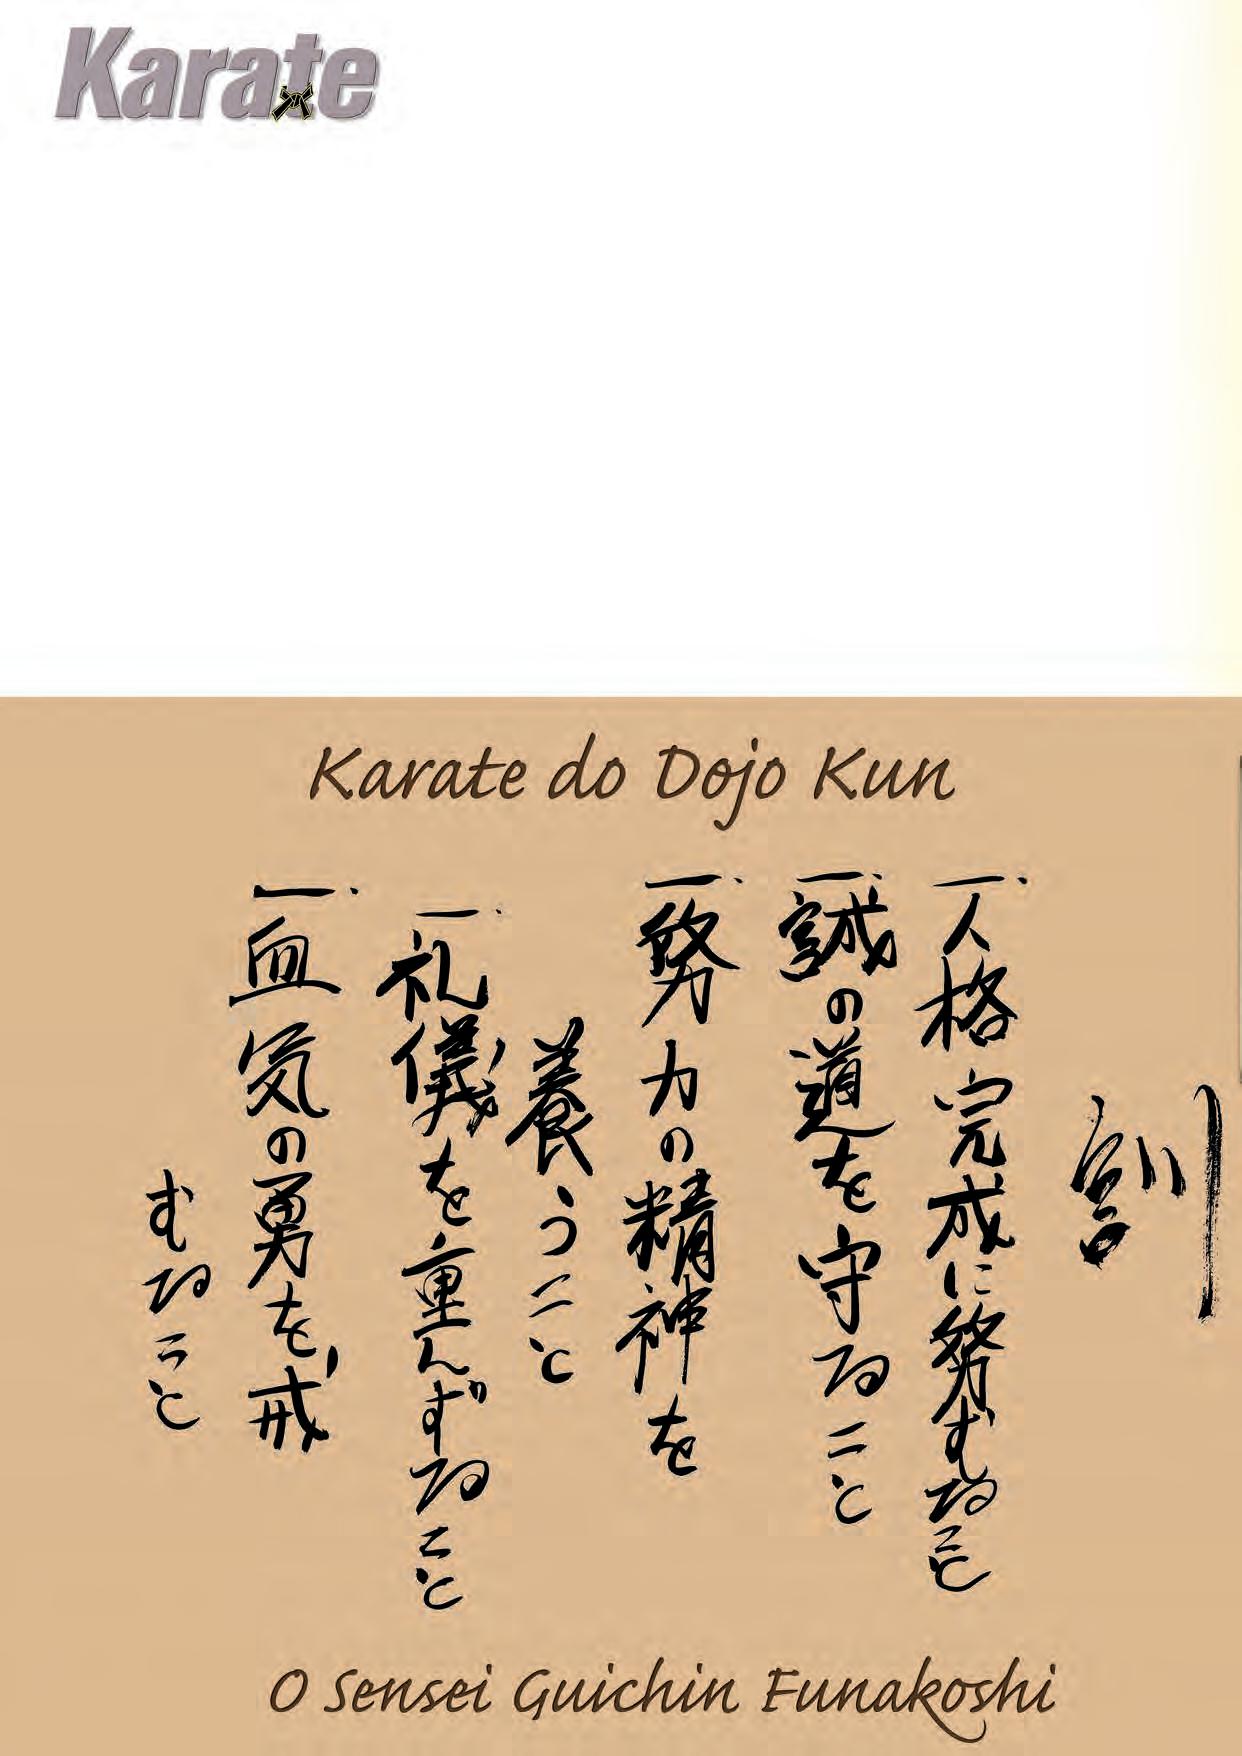 Karate
Karate do Dojo Kun
訓
一、人格完成に努むること
一、誠の道を守ること
一、努力の精神を
養うこと
一、礼儀を重んずること
一、血気の勇を戒
むること
O Sensei Guichin Funakoshi